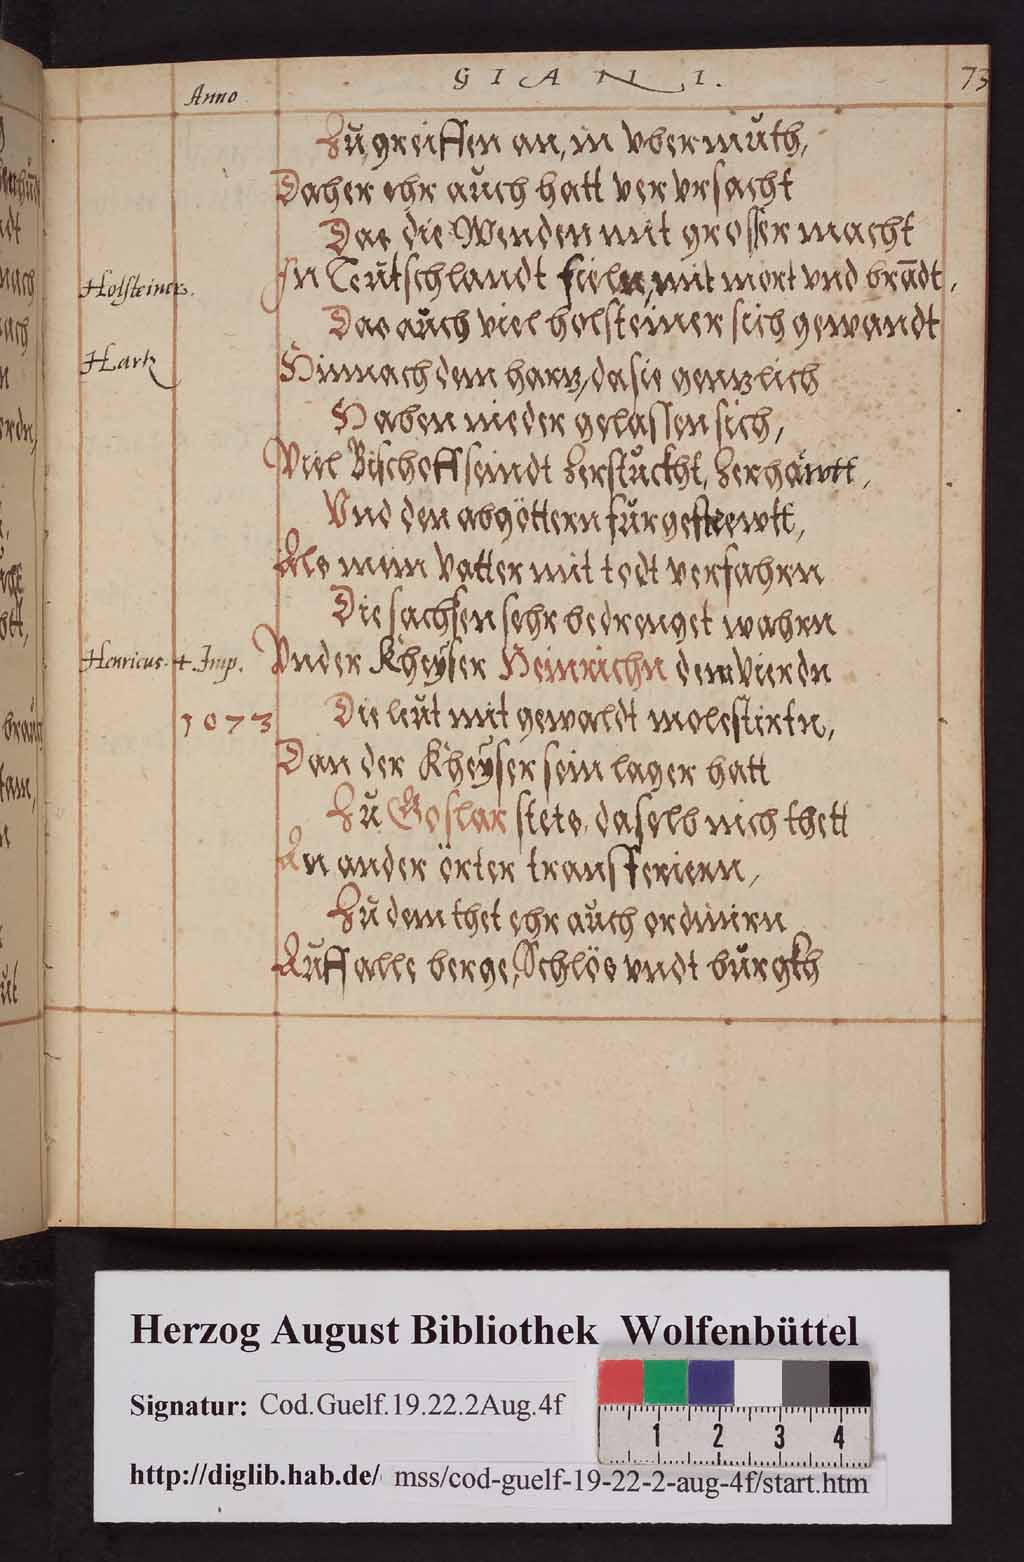 GIANI.
73
Anno
Zu greiffen an, in vbermuth,
Daher ehr auch hatt verursacht
Das die Wenden mit grosser macht
Holsteiners.
In Teutschlandt fieln, mit mort vnd brādt,
Das auch viel holsteiner sich gewandt
Hartz
Hinnach dem hartz, da sie gentzlich
Haben nieder gelassen sich,
Viel Bischoff seindt Zerstuckht, Zerhäwtt,
Vnd den abgöttern fur gestrewtt,
Als mein Vatter mit todt verfahrn
Die sachsen sehr bedrenget wahrn
Henricus. 4. Imp.
Vnder Kheyser Heinrichn dem Vierdn
1073
Die leut mit gewaldt molestirtn,
Dan der Kheyser sein lager hatt
Zu Goslar stets, daselb nich thett
An ander örter transferiern,
Zu dem thet ehr auch ordinirn
Auff alle berge, Schlös vndt burgkh
Herzog August Bibliothek Wolfenbüttel
Signatur: Cod.Guelf.19.22.2Aug.4f
1 2 3 4
http://diglib.hab.de/ mss/cod-guelf-19-22-2-aug-4f/start.htm